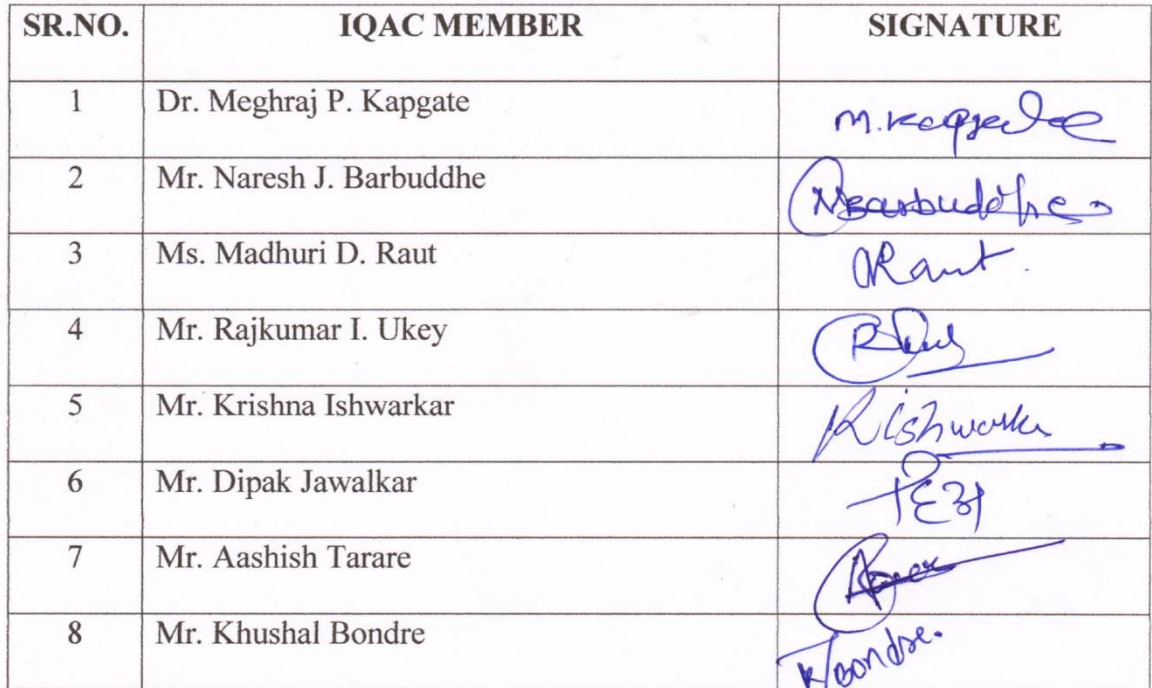 SR.NO. IQAC MEMBER SIGNATURE
1 Dr. Meghraj P. Kapgate M.Kapgate
2 Mr. Naresh J. Barbuddhe NBarbuddhe
3 Ms. Madhuri D. Raut Raut
4 Mr. Rajkumar I. Ukey
5 Mr. Krishna Ishwarkar
6 Mr. Dipak Jawalkar
7 Mr. Aashish Tarare
8 Mr. Khushal Bondre KBondre.